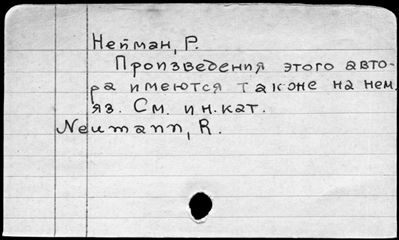 Нейман, Р.
Произведения этого авто-
ра имеются также на нем.
яз. См. ин. кат.
Neumann, R.